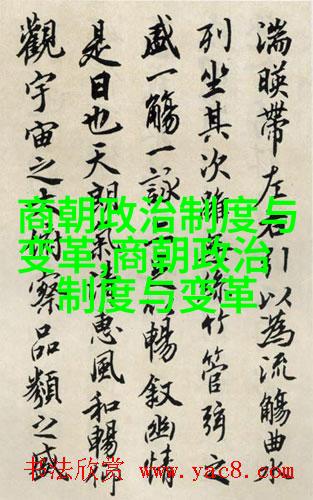 湍暎帶左右引以為流觴曲水
列坐其次雖無絲竹管弦之
盛一觴一詠亦足以暢敘幽情
是日也天朗氣清惠風和暢仰
觀宇宙之大俯察品類之盛
商朝政治制度与
变革-商朝政治
制度与变革
书法欣赏 www.yac8.com